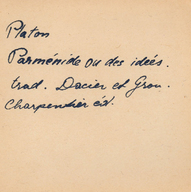 Platon
Parménide ou des idées.
trad. Dacier et Grou.
Charpentier éd.